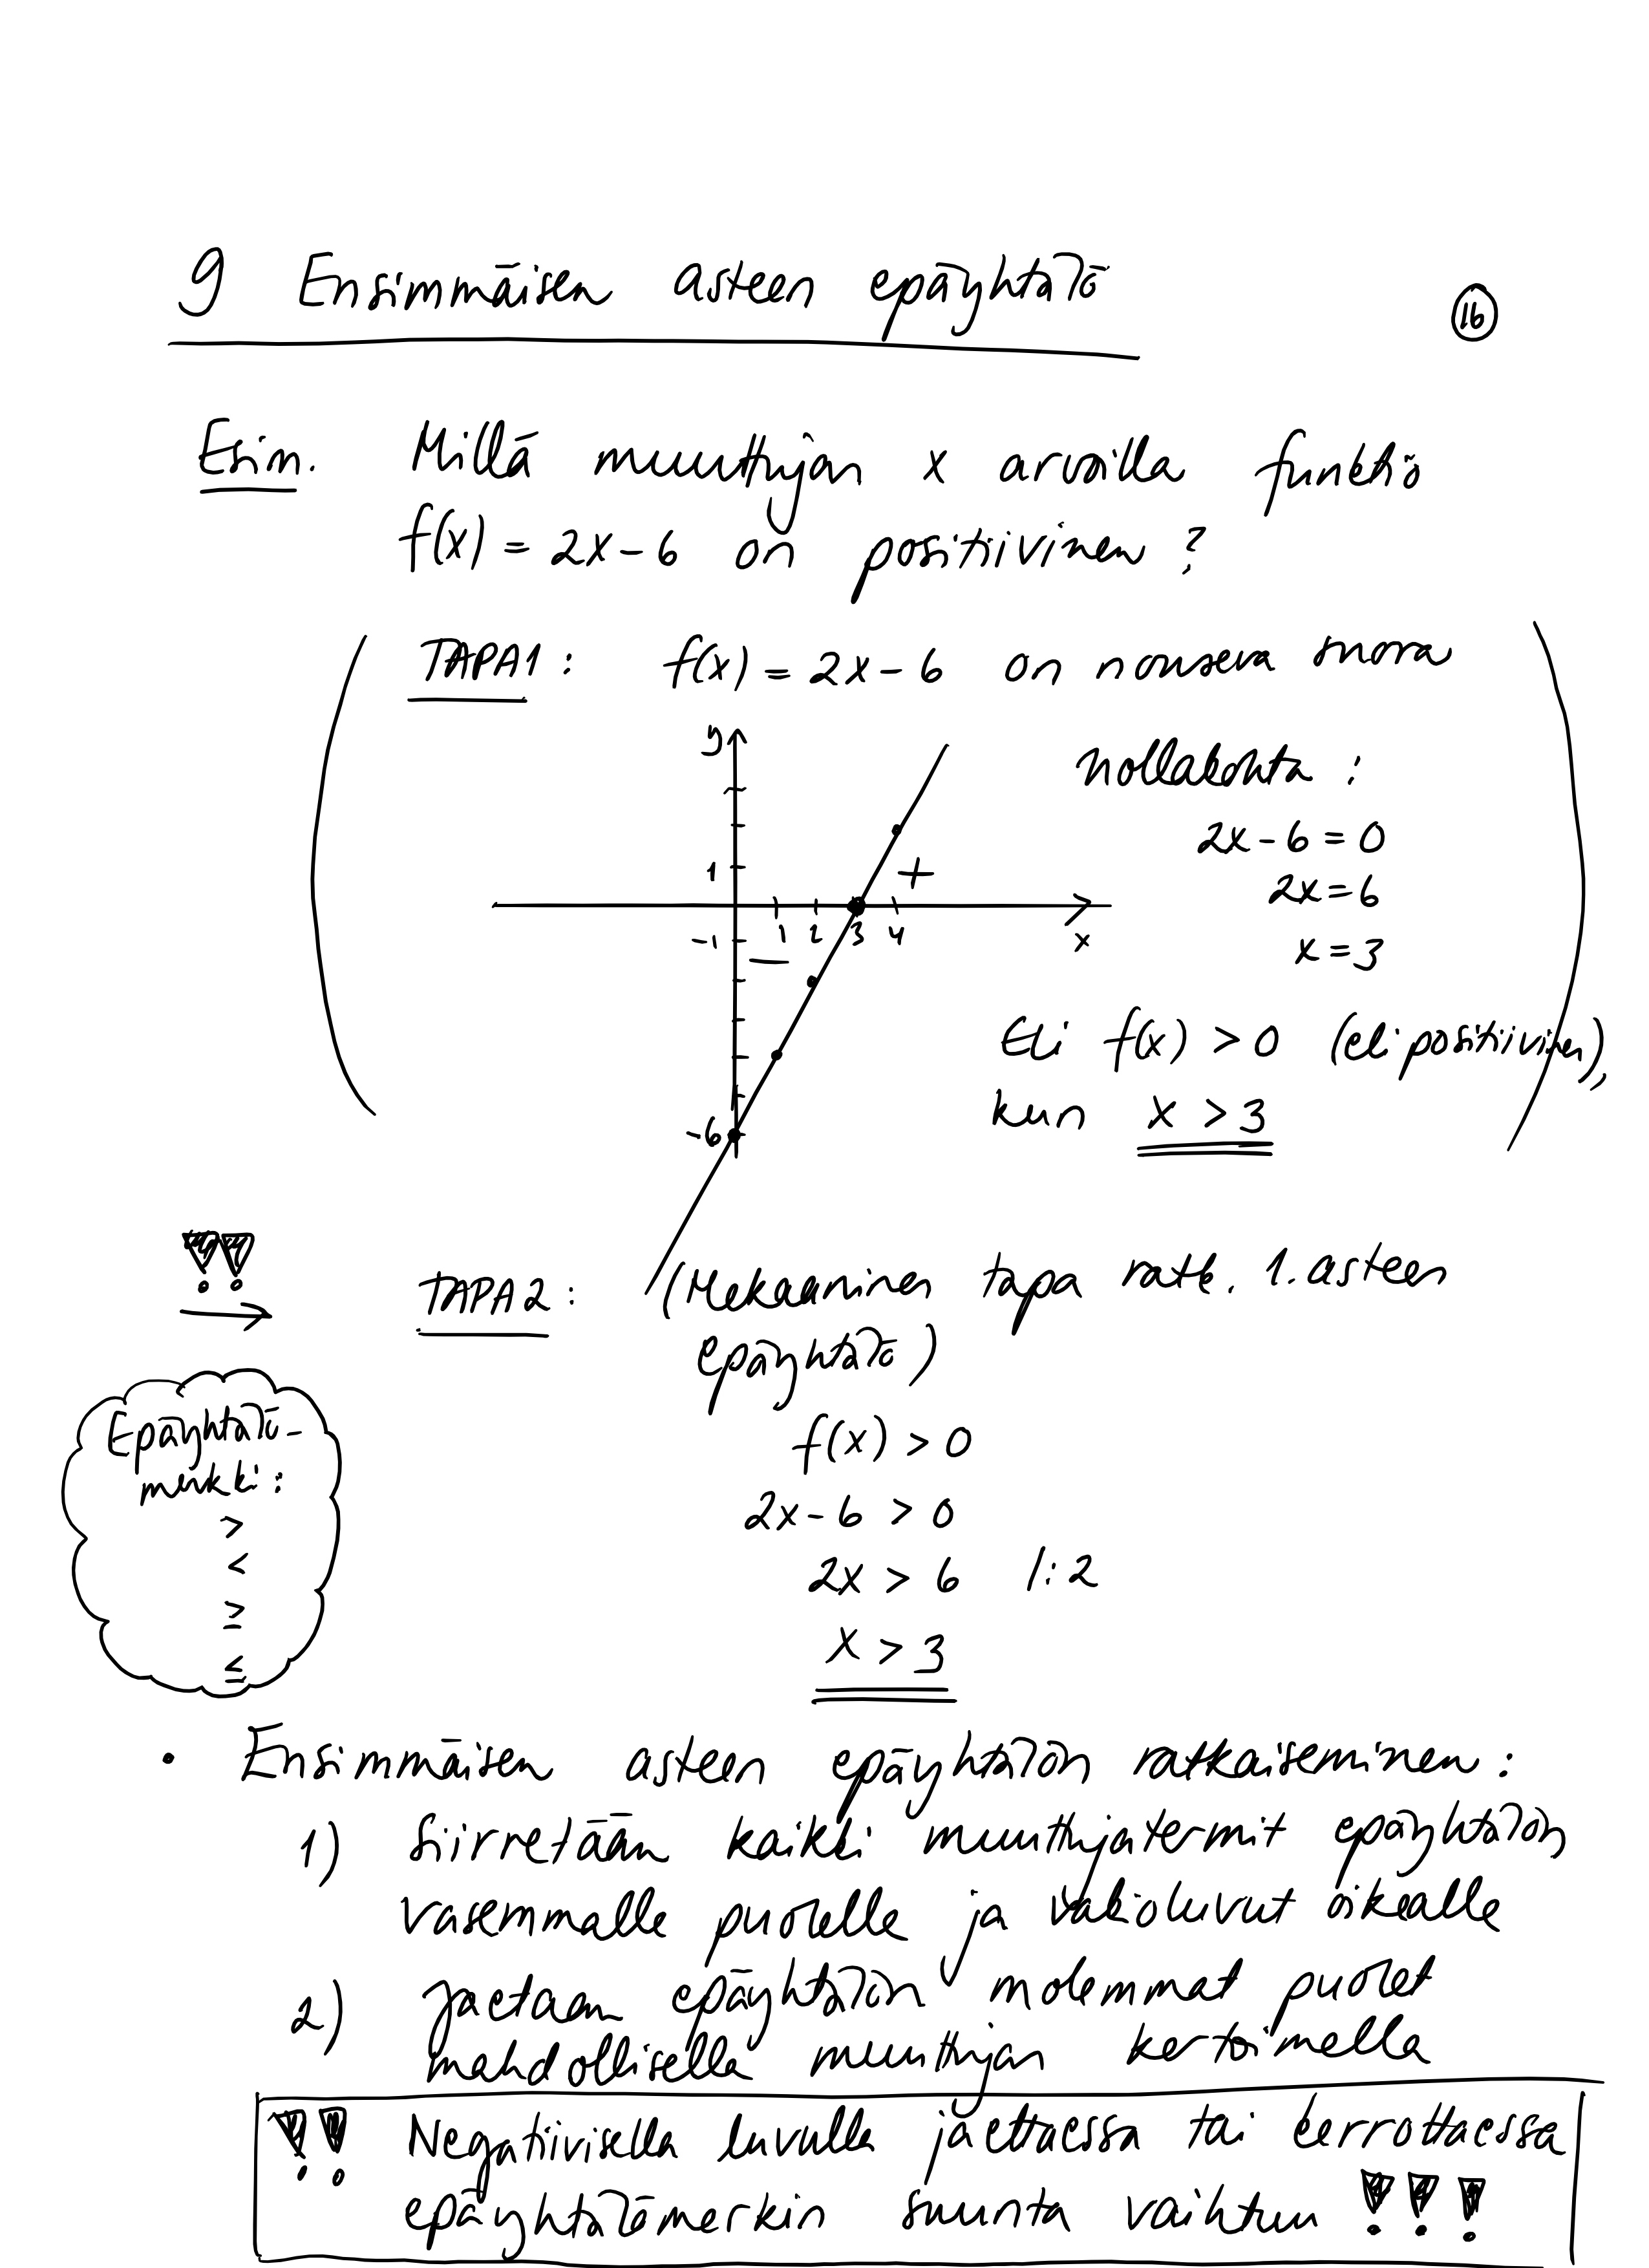 9 Ensimmäisen asteen epäyhtälö
16
Esim. Millä muuttujan x arvoilla funktio
f(x) = 2x-6 on positiivinen ?
TAPA1 : f(x) = 2x-6 on nouseva suora
y
x
1
-1
1 2 3 4
+
-
-6
nollakohta :
2x-6 = 0
2x = 6
x = 3
Eli f(x) > 0 (eli positiivinen),
kun x > 3
!!
TAPA2 : (Mekaaninen tapa ratk. 1. asteen
epäyhtälö)
f(x) > 0
2x-6 > 0
2x > 6 |: 2
x > 3
Epäyhtälö-
merkki :
>
<
≥
≤
• Ensimmäisen asteen epäyhtälön ratkaiseminen :
1) Siirretään kaikki muuttujatermit epäyhtälön
vasemmalle puolelle ja vakioluvut oikealle
2) Jaetaan epäyhtälön molemmat puolet
mahdollisella muuttujan kertoimella
!! Negatiivisella luvulla jaettaessa tai kerrottaessa
epäyhtälömerkin suunta vaihtuu !!!